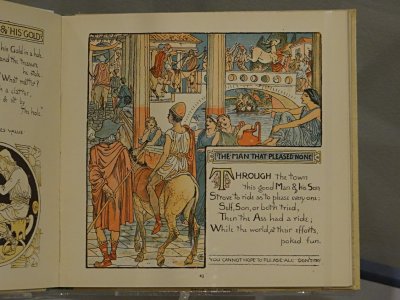 & HIS GOLD
his Gold in a hole,
and the treasure
he stole.
What matter?
a clatter,
do it by
the hole."
THE MAN THAT PLEASED NONE
THROUGH the town
this good Man & his Son
Strove to ride as to please every one:
Self, Son, or both tried,
Then the Ass had a ride;
While the world, at their efforts,
poked fun.
YOU CANNOT HOPE TO PLEASE ALL—DON'T TRY